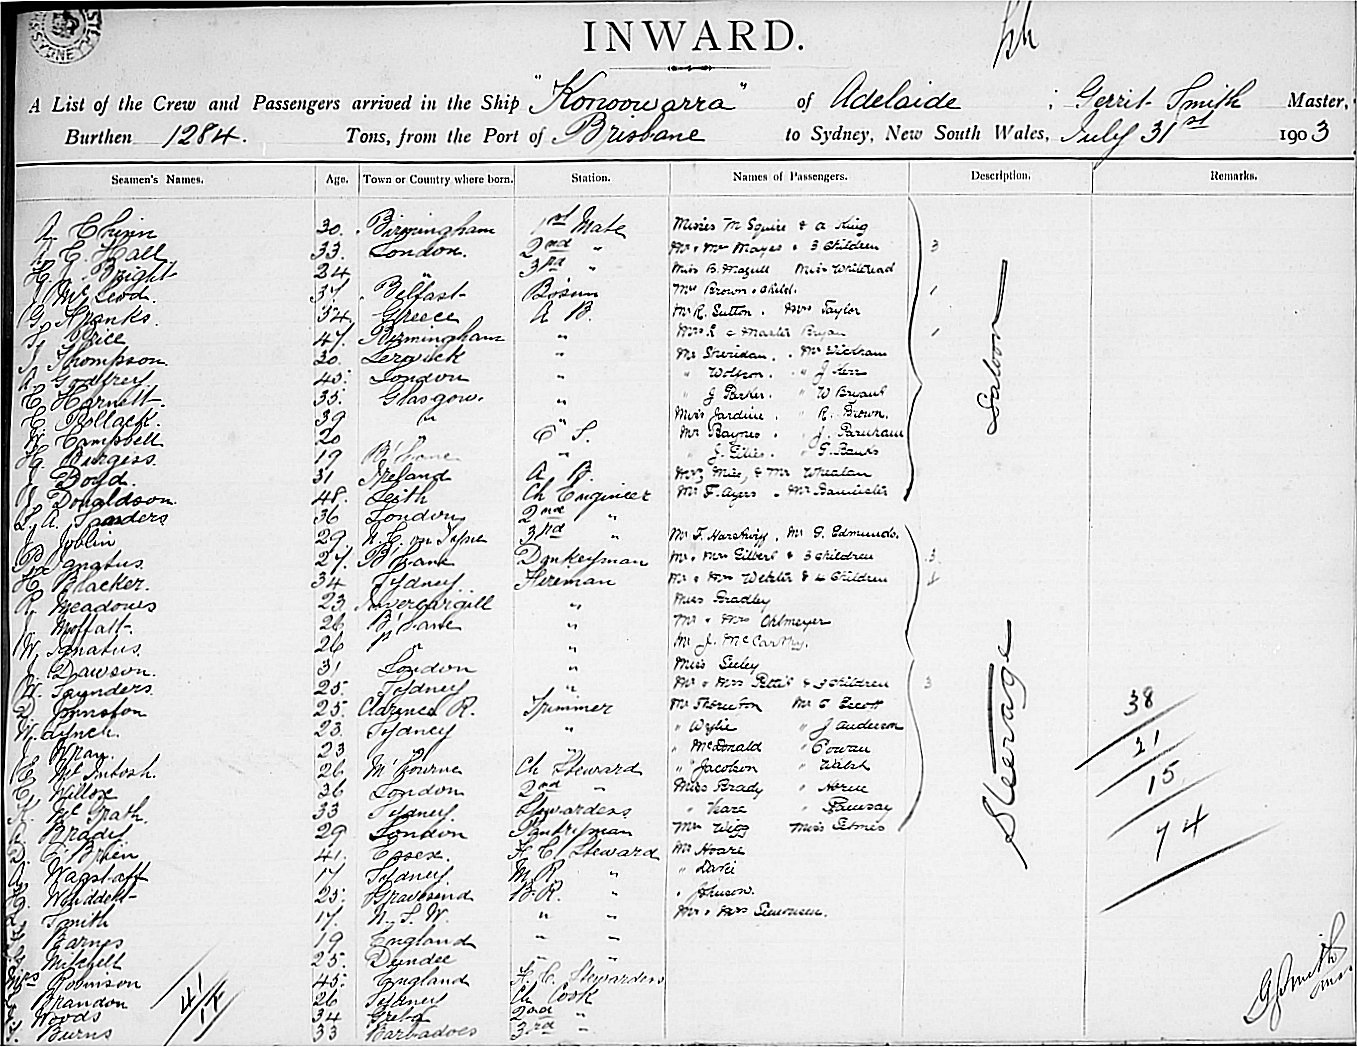 INWARD.
A List of the Crew and Passengers arrived in the Ship "Konoowarra" of Adelaide ; Gerrit Smith Master,
Burthen 1284. Tons, from the Port of Brisbane to Sydney, New South Wales, July 31st 1903
Seamen's Names. Age. Town or Country where born. Station. Names of Passengers. Description. Remarks.
Chinn 30. Birmingham 1st Mate Misses McSquire & A King
Hall 33. London. 2nd " Mr & Mrs Mayes & 3 Children 3
H. J. Bright 24 " 3rd " Miss B. Miss Whitehead
McLeod. 37. Belfast Bosun Mrs Brown & Child. 1
G. Franks. 34 Greece A B. Mr R. Sutton. Mrs Taylor
Price 47. Birmingham " Mrs & Master Bryan 1
J Thompson. 30. Lerwick " Mr Sheridan. Mr
A Godfrey 45. London " " " J Kerr
C Harnett. 35. Glasgow. " " J Parker. " W Bryant
C. Pollack. 39 " " Miss Jardine. " R. Brown.
W. Campbell 20 " O. S. Mr Baynes. " J.
H. Burgess. 19 B'bane " " J. Gillies. " G. Banks
J Boyd. 31 Ireland A. B. Mrs, Miss, & Mr Whealan
J. Donaldson. 48. Leith Ch Engineer Mr F. Ayers. Mr Bannister
L. A. Sanders 36 London 2nd "
J. Joblin 29 N. C. on Tyne 3rd " Mr F. Mr G. Edmunds.
Ignatus. 27. B'bane Donkeyman Mr & Mrs Gilbert & 3 Children 3
H. Blacker. 34 Sydney Fireman Mr & Mrs Webster & 4 Children
R. Meadows 23 Invercargill " Miss Bradley
J Moffatt. 26 B'bane " Mr & Mrs Ohlmeyer
W. Ignatus. 26 " " Mr J. McCarthy.
J. Dawson. 31 London " Miss Seeley
W. Saunders 25. Sydney " Mr & Mrs & 3 Children 3
D Johnston 25. Clarence R. Trimmer Mr Thornton Mr C Scott
W Lynch. 23. Sydney " " Wylie " J Anderson
23 " " " McDonald " Cowan
McIntosh. 26 M'bourne Ch Steward " Jacobson " Walsh
C. Willox 36 London 2nd " Miss Brady " Horne
McGrath. 33 Sydney. Stewardess " " Ramsay
Brady 29 London Pantryman Mrs Wigg Miss
D. O'Brien 41. Essex. F. C. Steward Mr Hoare
A. Wagstaff 17 Sydney M. R. "
Whiddett 25. Gravesend B. R. " " Johnson.
Smith 17. N. S. W. " " Mr & Mrs Simonsen.
Barnes 19 England " "
Mitchell 25. Dundee " "
Mrs Robinson 45. England F. C. Stewardess
Brandon 26 Sydney Ch Cook
Woods 34 Greta 2nd "
Burns 33 Barbadoes 3rd "
Saloon
Steerage
38
21
15
74
41
G Smith